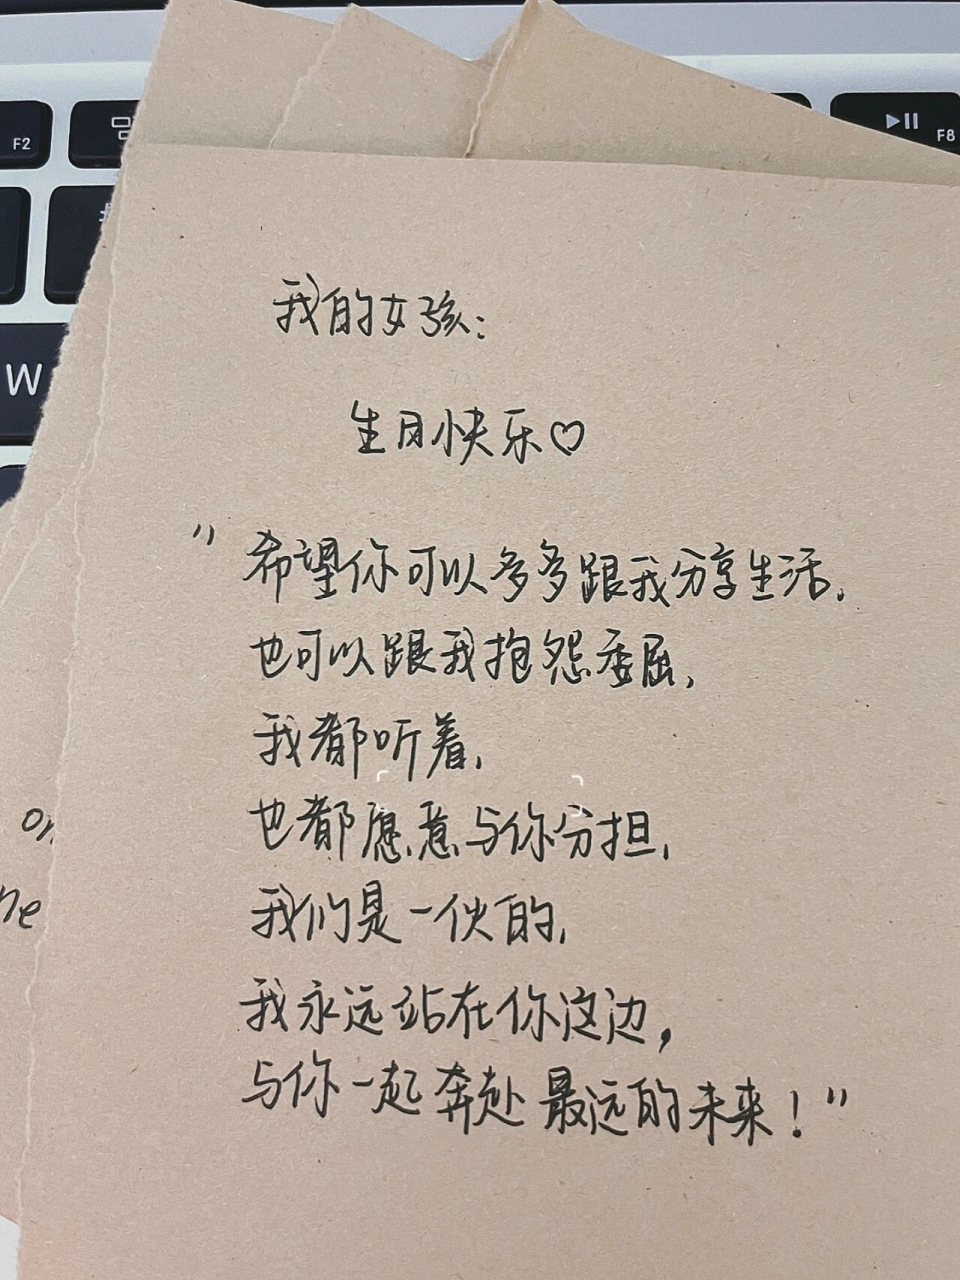 F2
F8
W
我的女孩：
生日快乐♡
"希望你可以多多跟我分享生活，
也可以跟我抱怨委屈，
我都听着，
也都愿意与你分担，
我们是一伙的，
我永远站在你这边，
与你一起奔赴最远的未来！"
on
ne